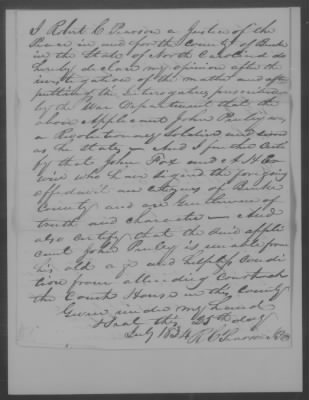 I Robert C Pearson a Justice of the
Peace in and for the County of Burke
in the State of North Carolina do
hereby declare my opinion after the
investigation of the matter and after
putting the interogatories prescribed
by the War Department that the
above Applicant John
a Revolutionary soldier and
as he States — And I further Certi
fy that John Fox and A H
win who have signed the foregoing
affidavit are citizens of Burke
County and are Gentlemen of
truth and character — And
also certify that the said appli
cant John is unable from
his old age and helpless condi
tion from attending Court at
the Court House in this County
Given under my hand
& seal this 25th day
July 1834 R C Pearson